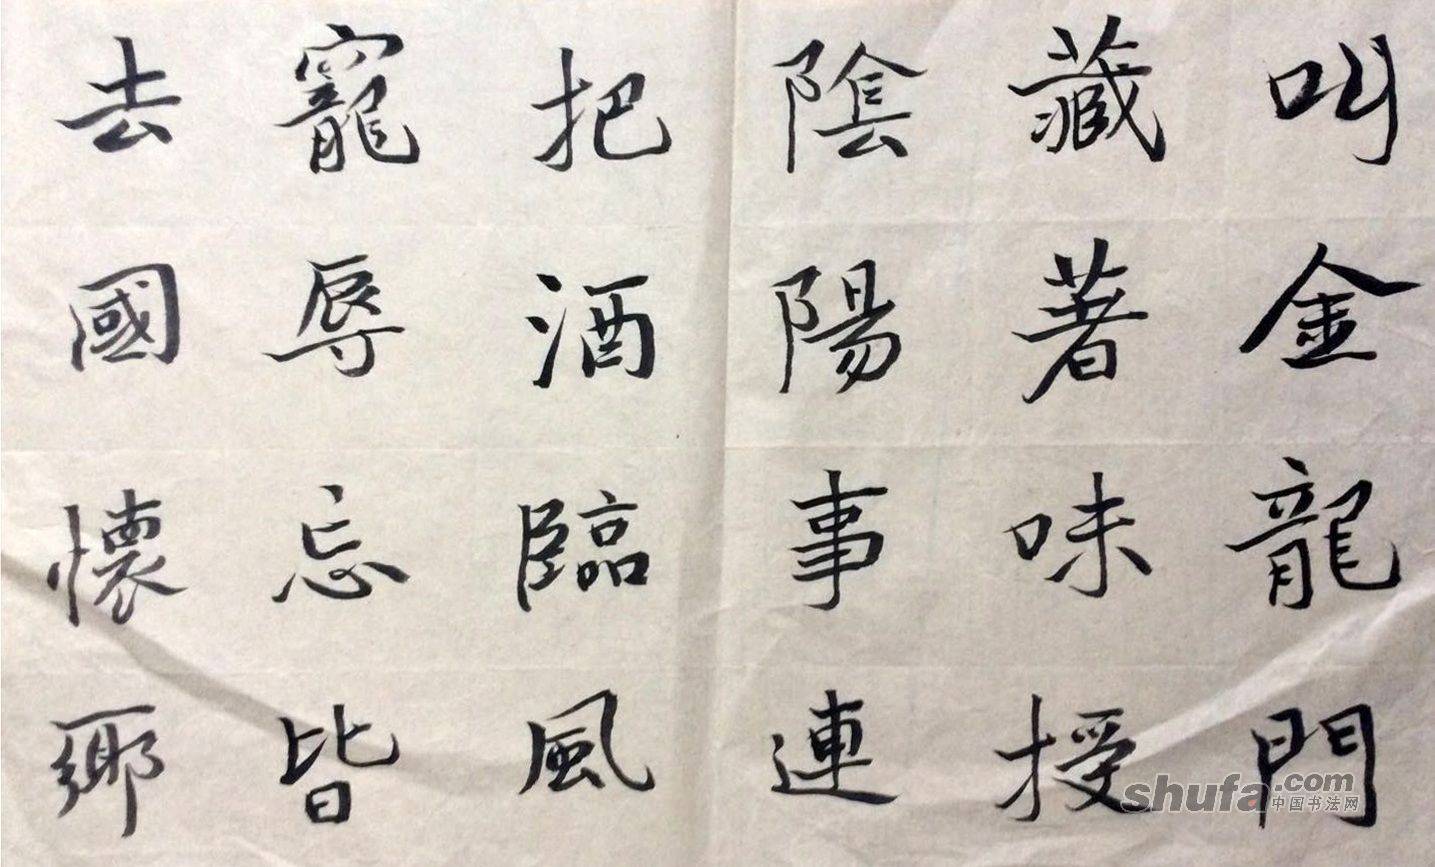 叫金龍門
藏著味授
陰陽事連
把酒臨風
寵辱忘皆
去國懷鄉
shufa.com
中国书法网